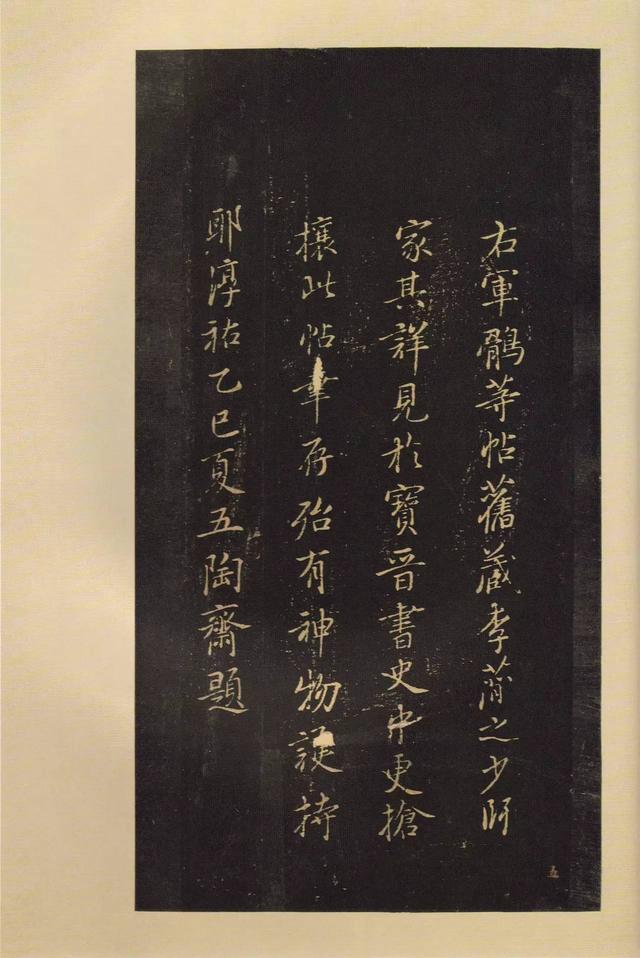 右軍鶻等帖舊藏李
之少師
家其詳見於寶晉書史中更搶
攘此帖幸存殆有神物護持
耶淳祐乙巳夏五陶齋題
五